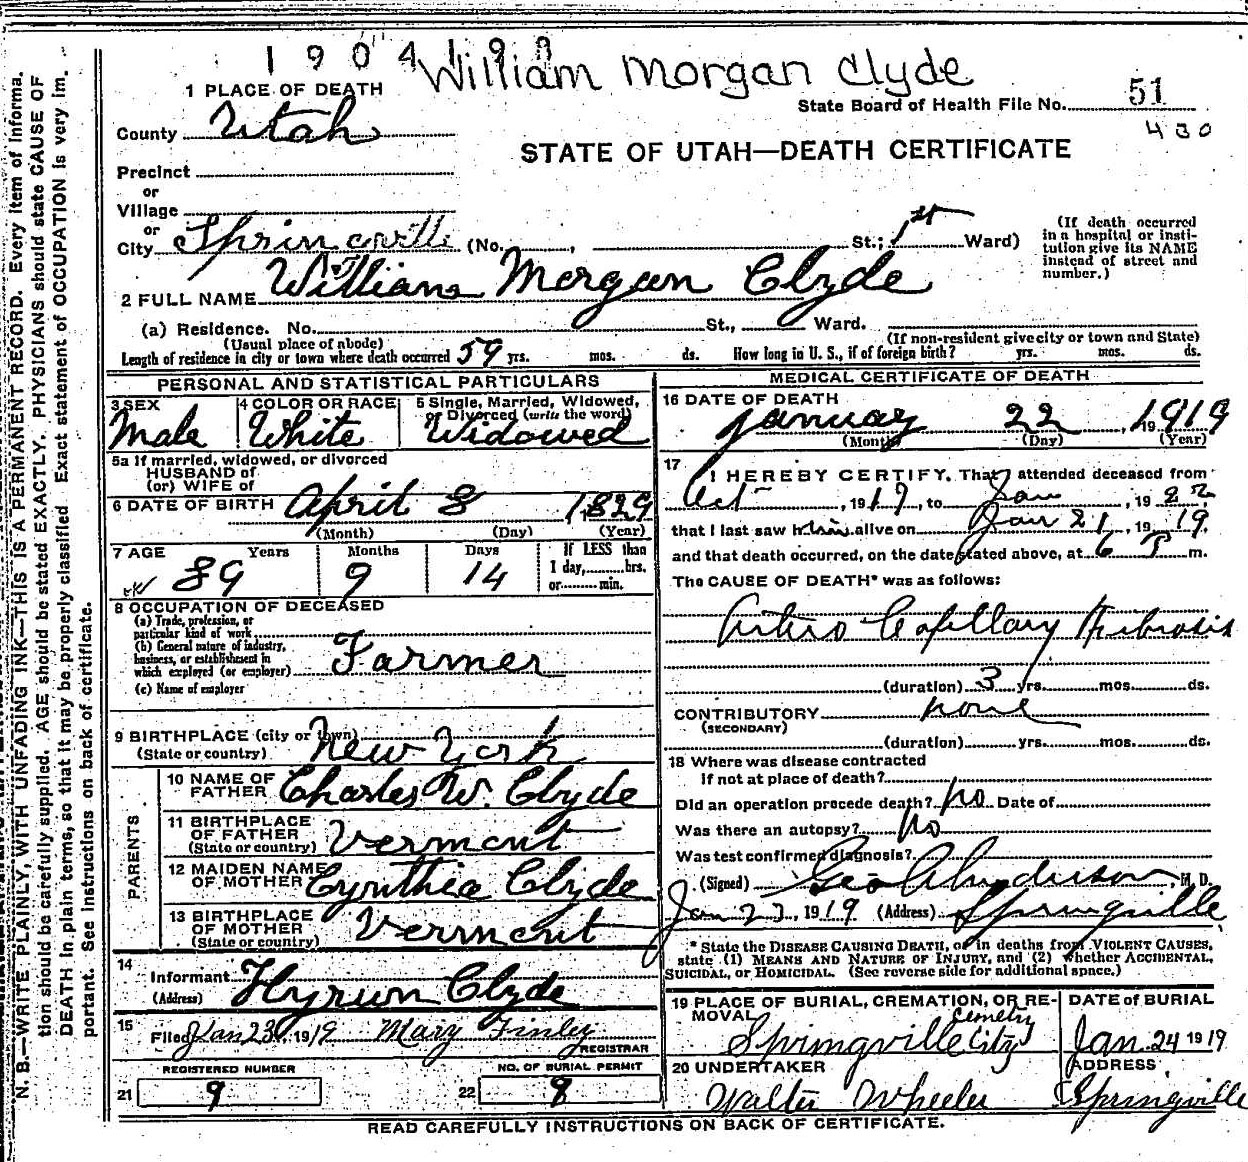 1904198
William Morgan Clyde
1 PLACE OF DEATH
State Board of Health File No. 51
430
County Utah
STATE OF UTAH—DEATH CERTIFICATE
Precinct
or
Village
or
City Springville (No. , St.; 1st Ward)
(If death occurred in a hospital or institution give its NAME instead of street and number.)
2 FULL NAME William Morgan Clyde
(a) Residence. No. St., Ward.
(Usual place of abode) (If non-resident give city or town and State)
Length of residence in city or town where death occurred 59 yrs. mos. ds. How long in U. S., if of foreign birth? yrs. mos. ds.
PERSONAL AND STATISTICAL PARTICULARS
3 SEX Male
4 COLOR OR RACE White
5 Single, Married, Widowed, or Divorced (write the word) Widowed
5a If married, widowed, or divorced
HUSBAND of
(or) WIFE of
6 DATE OF BIRTH April 8 1829
(Month) (Day) (Year)
7 AGE Years Months Days If LESS than
89 9 14 1 day, hrs.
or min.
8 OCCUPATION OF DECEASED
(a) Trade, profession, or
particular kind of work
(b) General nature of industry,
business, or establishment in
which employed (or employer) Farmer
(c) Name of employer
9 BIRTHPLACE (city or town)
(State or country) New York
PARENTS
10 NAME OF FATHER Charles W. Clyde
11 BIRTHPLACE OF FATHER (State or country) Vermont
12 MAIDEN NAME OF MOTHER Cynthia Clyde
13 BIRTHPLACE OF MOTHER (State or country) Vermont
14
Informant Hyrum Clyde
(Address)
15
Filed Jan 23, 1919 Mary Finley
REGISTRAR
REGISTERED NUMBER
21 9
NO. OF BURIAL PERMIT
22 8
MEDICAL CERTIFICATE OF DEATH
16 DATE OF DEATH
January 22, 1919
(Month) (Day) (Year)
17
I HEREBY CERTIFY, That I attended deceased from
Oct , 1917, to Jan , 1922
that I last saw him alive on Jan 21, 1919.
and that death occurred, on the date stated above, at 6 P m.
The CAUSE OF DEATH* was as follows:
Arterio Capillary Fibrosis
(duration) 3 yrs. mos. ds.
CONTRIBUTORY none
(SECONDARY)
(duration) yrs. mos. ds.
18 Where was disease contracted
if not at place of death?
Did an operation precede death? no Date of
Was there an autopsy? no
Was test confirmed diagnosis?
(Signed) Geo Anderson, M. D.
Jan 23, 1919 (Address) Springville
* State the DISEASE CAUSING DEATH, or in deaths from VIOLENT CAUSES,
state (1) MEANS AND NATURE OF INJURY, and (2) whether ACCIDENTAL,
SUICIDAL, or HOMICIDAL. (See reverse side for additional space.)
19 PLACE OF BURIAL, CREMATION, OR REMOVAL
Springville City Cemetry
DATE of BURIAL
Jan 24 1919
20 UNDERTAKER
Walter Wheeler
ADDRESS
Springville
READ CAREFULLY INSTRUCTIONS ON BACK OF CERTIFICATE.
N. B.—WRITE PLAINLY, WITH UNFADING INK—THIS IS A PERMANENT RECORD. Every item of informa-
tion should be carefully supplied. AGE should be stated EXACTLY. PHYSICIANS should state CAUSE OF
DEATH in plain terms, so that it may be properly classified. Exact statement of OCCUPATION is very im-
portant. See instructions on back of certificate.